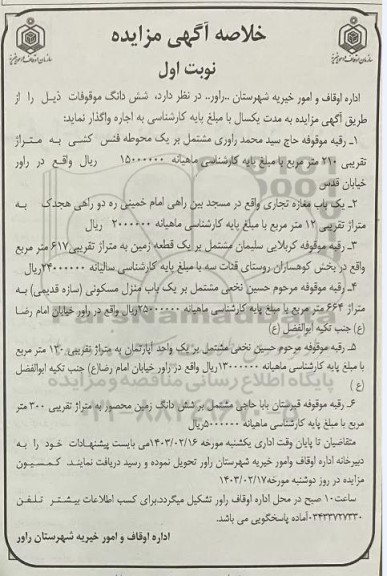 خلاصه آگهی مزایده
نوبت اول
اداره اوقاف و امور خیریه شهرستان ..راور.. در نظر دارد، شش دانگ موقوفات ذیل را از
طریق آگهی مزایده به مدت یکسال با مبلغ پایه کارشناسی به اجاره واگذار نماید:
۱ـ رقبه موقوفه حاج سید محمد راوری مشتمل بر یک محوطه فنس کشی به متراژ
تقریبی ۲۱۰ متر مربع با مبلغ پایه کارشناسی ماهیانه ۱۵۰۰۰۰۰۰ ریال واقع در راور
خیابان قدس
۲ـ یک باب مغازه تجاری واقع در مسجد بین راهی امام خمینی ره دو راهی هجدک به
متراژ تقریبی ۱۲ متر مربع با مبلغ پایه کارشناسی ماهیانه ۲۰۰۰۰۰۰ ریال
۳ـ رقبه موقوفه کربلایی سلیمان مشتمل بر یک قطعه زمین به متراژ تقریبی ۶۱۷ متر مربع
واقع در بخش کوهساران روستای قنات سه با مبلغ پایه کارشناسی سالیانه ۲۴۰۰۰۰۰۰ریال
۴ـ رقبه موقوفه مرحوم حسین نخعی مشتمل بر یک باب منزل مسکونی (سازه قدیمی) به
متراژ ۶۶۴ متر مربع با مبلغ پایه کارشناسی ماهیانه ۲۵۰۰۰۰۰۰ریال واقع در راور خیابان امام رضا
(ع) جنب تکیه ابوالفضل (ع)
۵ـ رقبه موقوفه مرحوم حسین نخعی مشتمل بر یک واحد آپارتمان به متراژ تقریبی ۱۳۰ متر مربع
با مبلغ پایه کارشناسی ماهیانه ۱۳۰۰۰۰۰۰ریال واقع در راور خیابان امام رضا(ع) جنب تکیه ابوالفضل
(ع)
۶ـ رقبه موقوفه قبرستان بابا حاجی مشتمل بر شش دانگ زمین محصور به متراژ تقریبی ۳۰۰ متر
مربع با مبلغ پایه کارشناسی ماهیانه ۵۰۰۰۰۰۰ریال
متقاضیان تا پایان وقت اداری یکشنبه مورخه ۱۴۰۳/۰۲/۱۶می بایست پیشنهادات خود را به
دبیرخانه اداره اوقاف وامور خیریه شهرستان راور تحویل نموده و رسید دریافت نمایند. کمسیون
مزایده در روز دوشنبه مورخه۱۴۰۳/۰۲/۱۷
ساعت۱۰ صبح در محل اداره اوقاف راور تشکیل میگردد.برای کسب اطلاعات بیشتر تلفن
۰۳۴۳۳۷۲۷۳۳۰آماده پاسخگویی می باشد.
اداره اوقاف و امور خیریه شهرستان راور